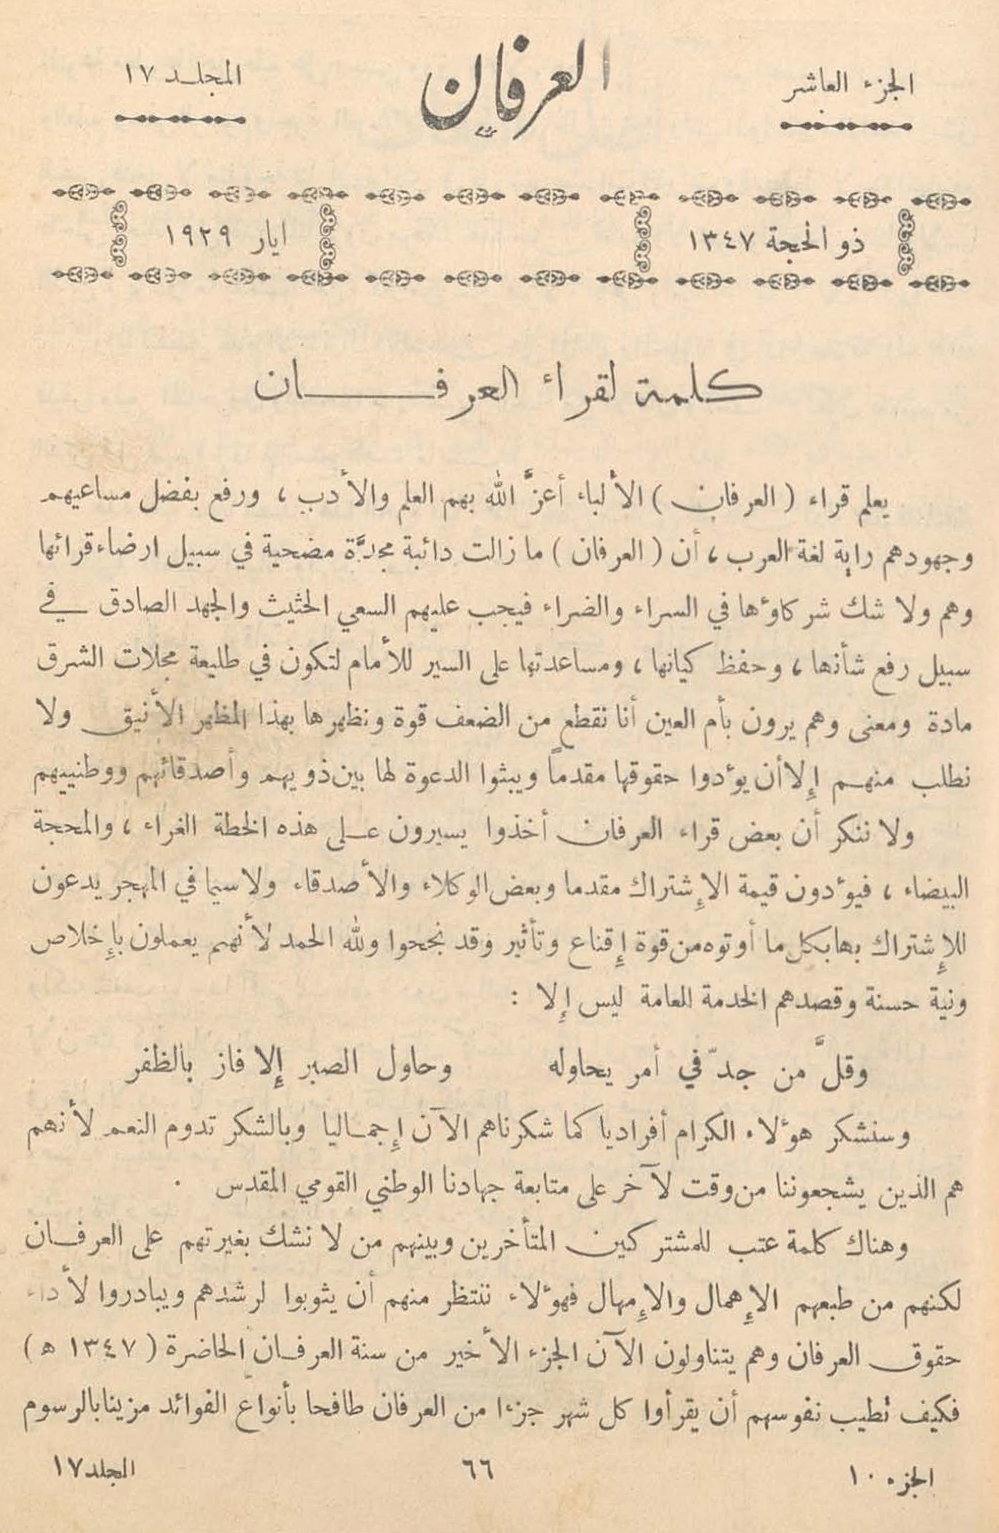 الجزء العاشر
العرفان
المجلد ١٧
ذو الحجة ١٣٤٧
ايار ١٩٢٩
كلمة لقراء العرفان
يعلم قراء ( العرفان ) الألباء أعزَّ الله بهم العلم والأدب ، ورفع بفضل مساعيهم
وجهودهم راية لغة العرب ، أن ( العرفان ) ما زالت دائبة مجدَّة مضحية في سبيل ارضاء قرائها
وهم ولا شك شركاؤها في السراء والضراء فيجب عليهم السعي الحثيث والجهد الصادق في
سبيل رفع شأنها ، وحفظ كيانها ، ومساعدتها على السير للأمام لتكون في طليعة مجلات الشرق
مادة ومعنى وهم يرون بأم العين أنا نقطع من الضعف قوة ونظهرها بهذا المظهر الأنيق ولا
نطلب منهم إلا أن يؤدوا حقوقها مقدماً ويبثوا الدعوة لها بين ذويهم وأصدقائهم ووطنييهم
ولا ننكر أن بعض قراء العرفان أخذوا يسيرون على هذه الخطة الغراء ، والمحجة
البيضاء ، فيؤدون قيمة الإشتراك مقدما وبعض الوكلاء والأصدقاء ولاسيما في المهجر يدعون
للإشتراك بها بكل ما أوتوه من قوة إقناع وتأثير وقد نجحوا ولله الحمد لأنهم يعملون بإخلاص
ونية حسنة وقصدهم الخدمة العامة ليس إلا :
وقلَّ من جدّ في أمر يحاوله وحاول الصبر إلا فاز بالظفر
وسنشكر هؤلاء الكرام أفراديا كما شكرناهم الآن إجماليا وبالشكر تدوم النعم لأنهم
هم الذين يشجعوننا من وقت لآخر على متابعة جهادنا الوطني القومي المقدس .
وهناك كلمة عتب للمشتركين المتأخرين وبينهم من لا نشك بغيرتهم على العرفان
لكنهم من طبعهم الإهمال والإمهال فهؤلاء ننتظر منهم أن يثوبوا لرشدهم ويبادروا لأداء
حقوق العرفان وهم يتناولون الآن الجزء الأخير من سنة العرفان الحاضرة ( ١٣٤٧ ه )
فكيف تطيب نفوسهم أن يقرأوا كل شهر جزءا من العرفان طافحا بأنواع الفوائد مزينا بالرسوم
الجزء ١٠
٦٦
المجلد ١٧